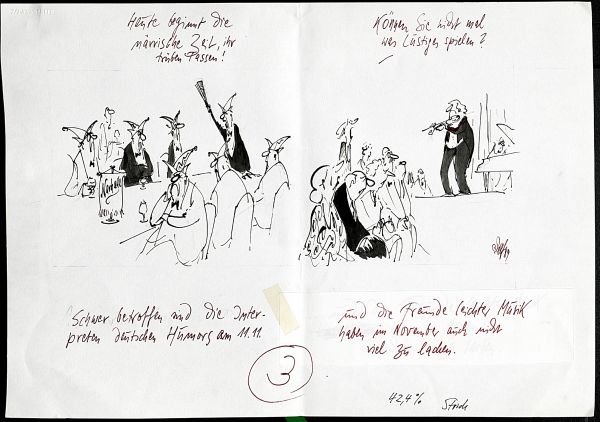 Heute beginnt die
närrische Zeit, ihr
trüben Tassen!
Können Sie nicht mal
was Lustiges spielen?
Schwer betroffen sind die Inter-
preten deutschen Humors am 11.11.
und die Freunde leichter Musik
haben im November auch nicht
viel zu lachen.
3
42,4%
Strich